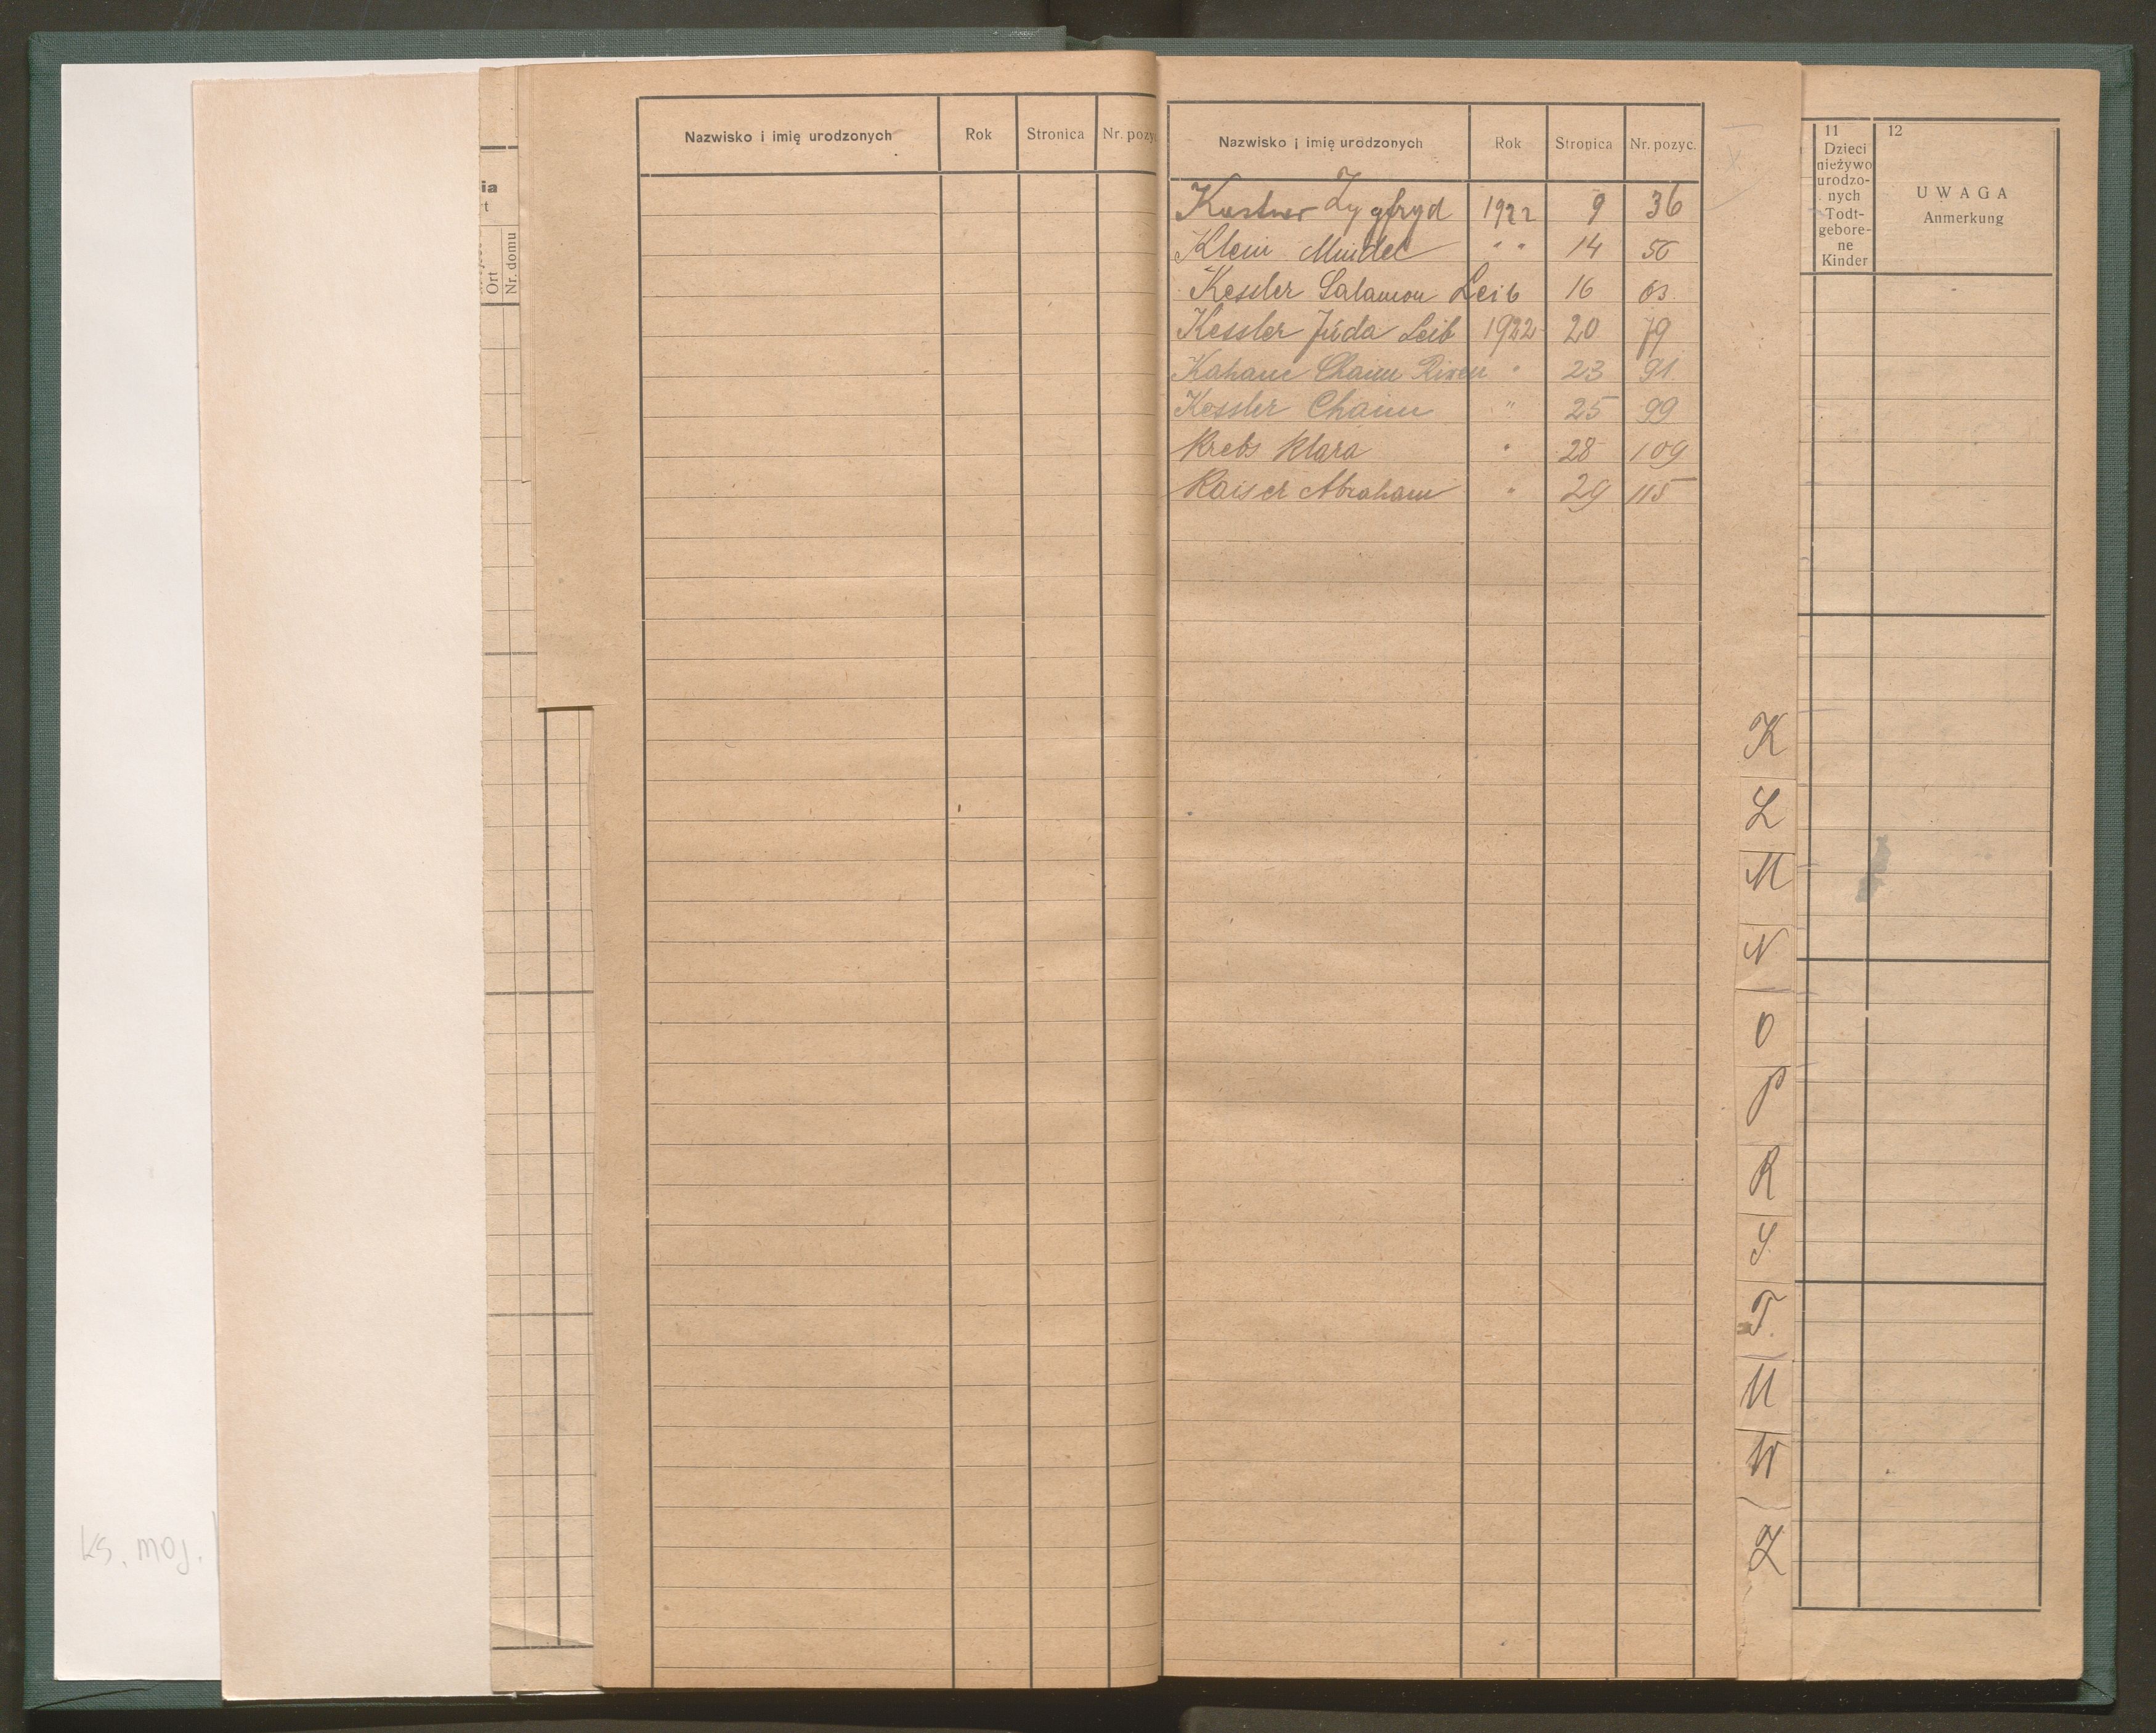 ia
t
Ort
Nr. domu
Nazwisko i imię urodzonych Rok Stronica Nr. pozy
Nazwisko i imię urodzonych Rok Stronica Nr. pozyc.
Kastner Zygfryd 1922 9 36
Klein Mindel " " 14 56
Kessler Salamon Leib 16 63.
Kessler Juda Leib 1922 20 79
Kahane Chaim " 23 91.
Kessler Chaim " 25 99
Krebs Klara " 28 109
Kaiser Abraham " 29 115
K
L
M
N
O
P
R
S
T.
U
W
Z
11
Dzieci
nieżywo
urodzo-
nych
Todt-
gebore-
ne
Kinder
12
UWAGA
Anmerkung
ks. moj.